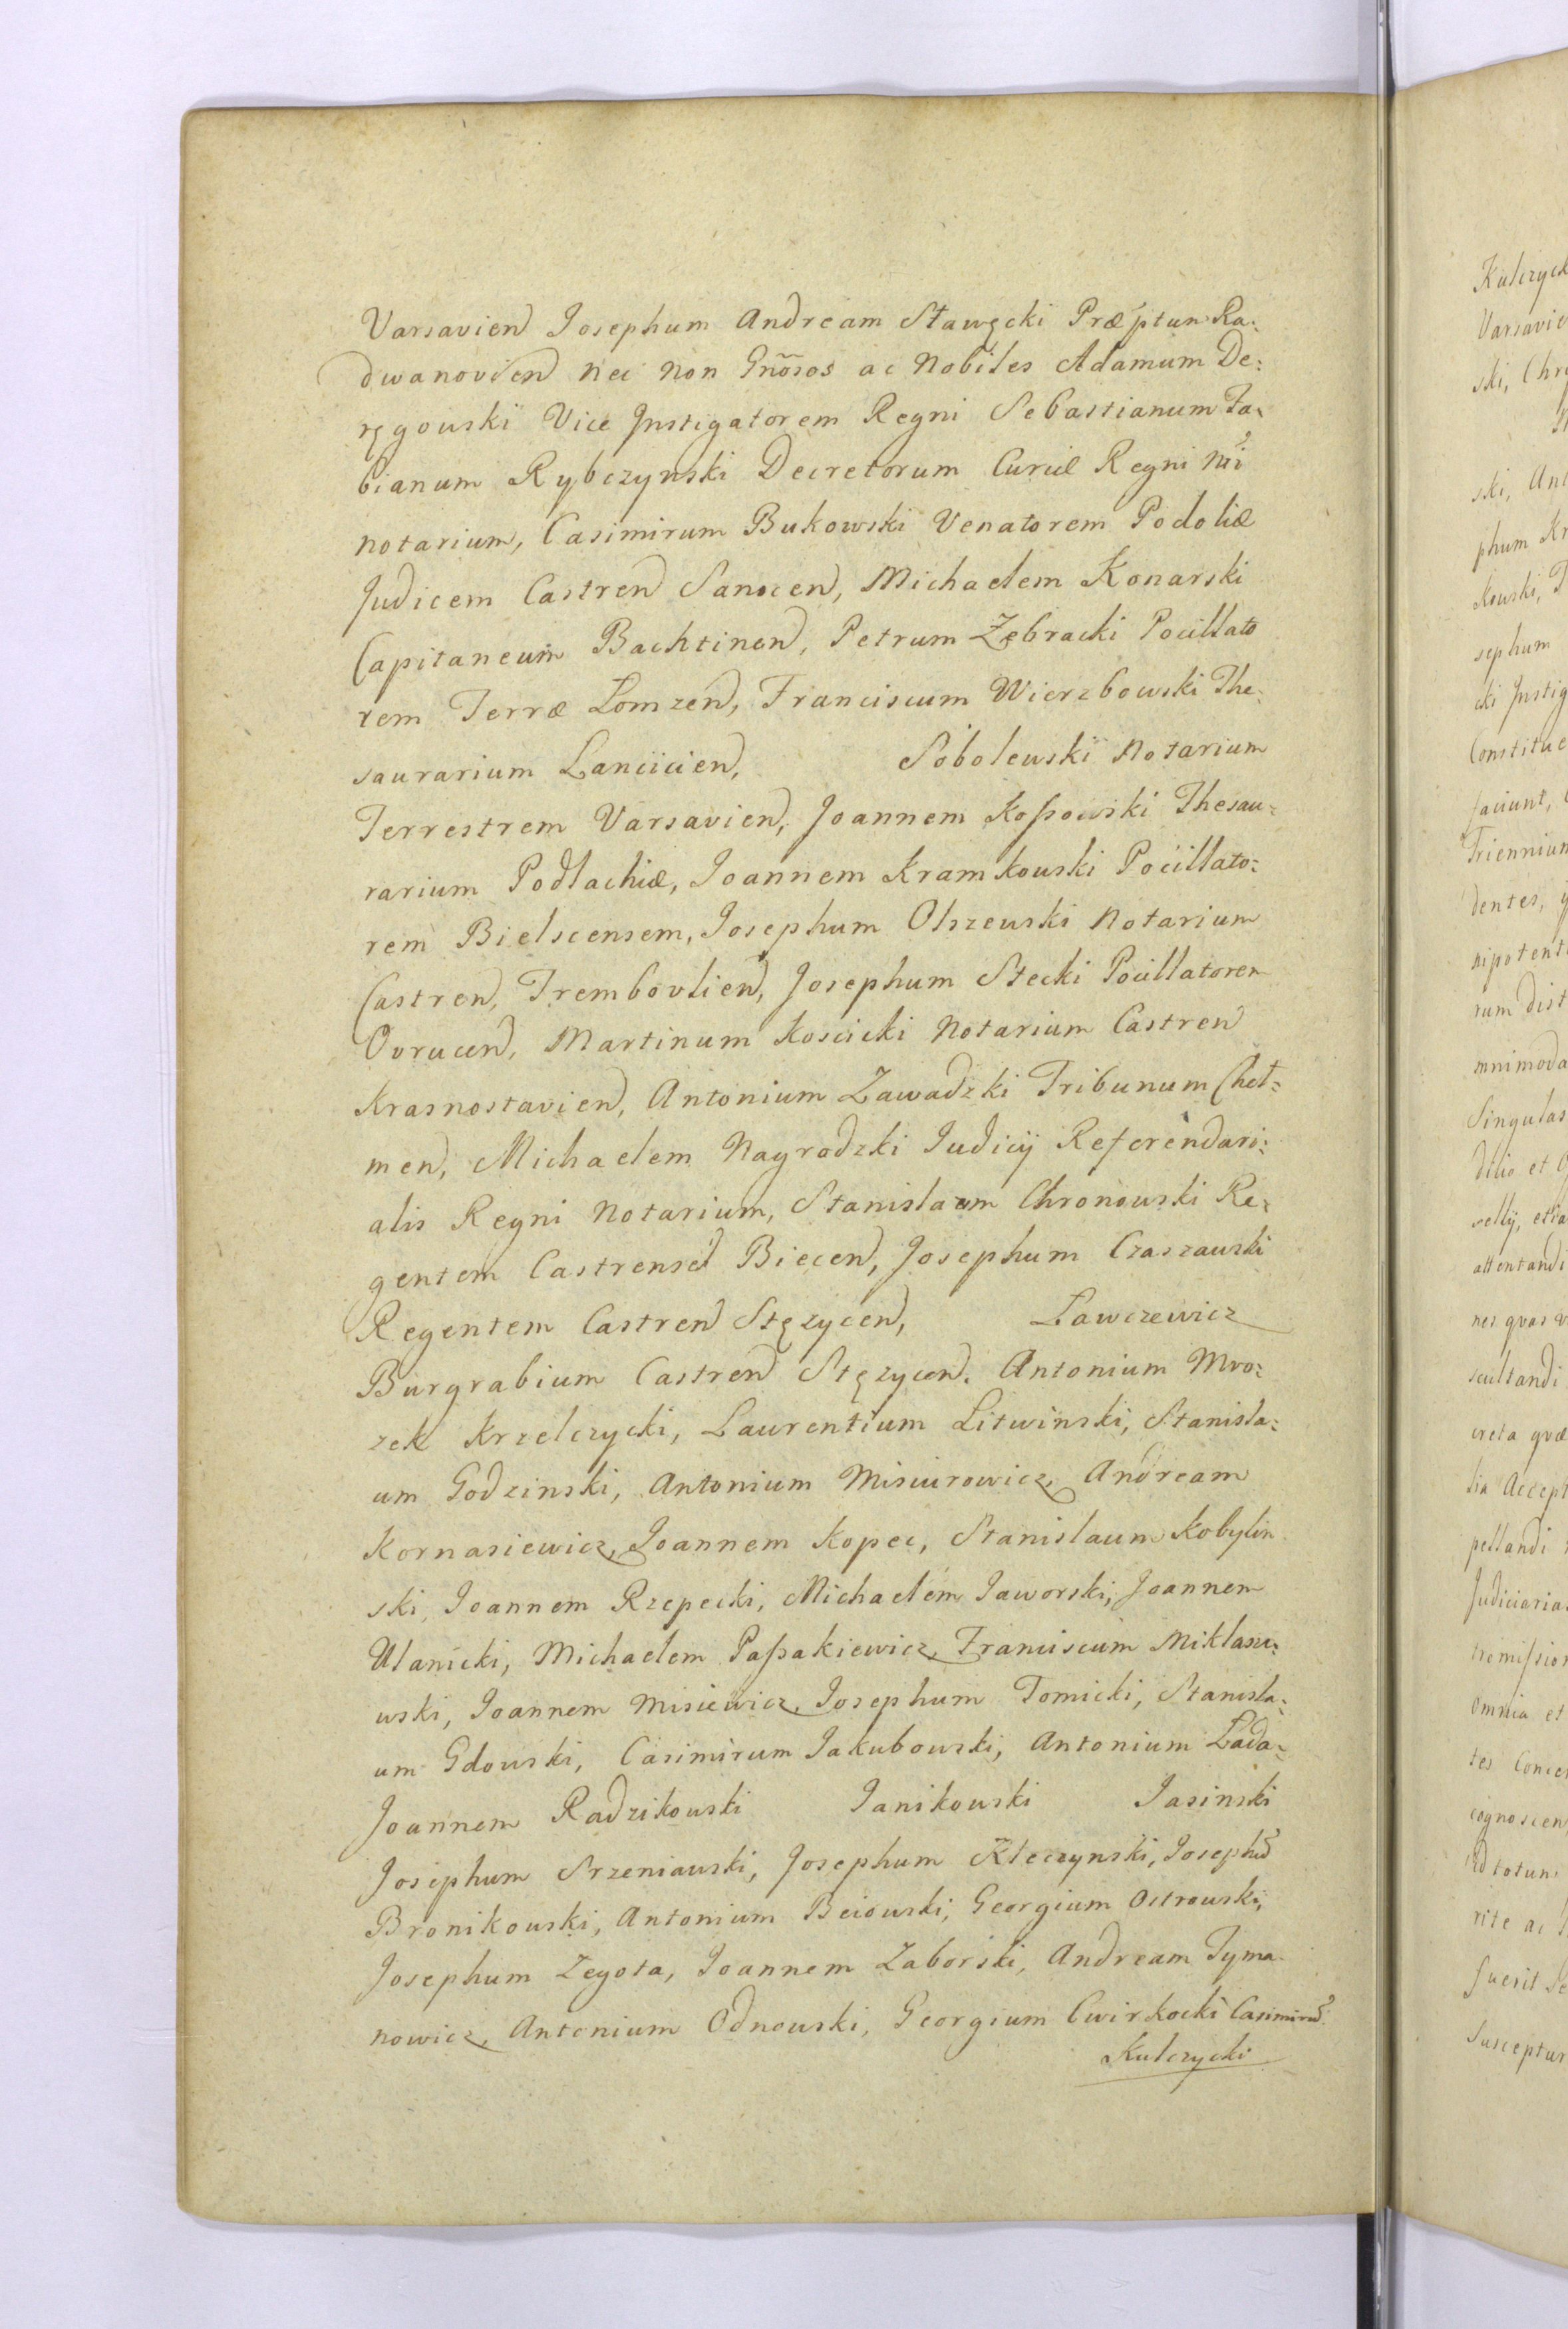 Varsavien Josephum Andream Sławęcki Præptum Ra:
dwanovien nec non Gñosos ac Nobiles Adamum De:
ręgouski Vice Instigatorem Regni Sebastianum Fa:
bianum Rybczynski Decretorum Curiæ Regni
notarium, Casimirum Bukowski Venatorem Podoliæ
Judicem Castren Sanocen, Michaelem Konarski
Capitaneum Bachtinen, Petrum Zębracki Pocillato
rem Terræ Lomzen, Franciscum Wierzbowski The:
saurarium Lancicien, Sobolewski Notarium
Terrestrem Varsavien, Joannem Kossowski Thesau:
rarium Podlachiæ, Joannem Kramkouski Pocillato:
rem Bielscensem, Josephum Olszeuski Notarium
Castren, Trembovlien, Josephum Stecki Pocillatorem
Ovrucen, Martinum Koscicki Notarium Castren
Krasnostavien, Antonium Zawadzki Tribunum Cheł:
men, Michaelem Nagrodzki Judicij Referendari:
alis Regni Notarium, Stanislaum Chronowski Re:
gentem Castrensem Biecen, Josephum Czaszauski
Regentem Castren Stęzycen, Lawczewicz
Burgrabium Castren Stęzycen. Antonium Mro:
zek Krzelczycki, Laurentium Litwinski, Stanisla:
um Godzinski, Antonium Misiurowicz, Andream
Kornasiewicz, Joannem Kopec, Stanislaum Kobylin
ski, Joannem Rzepecki, Michaelem Jaworski, Joannem
Ulanicki, Michaelem Passakiewicz, Franciscum Miklasze:
wski, Joannem Misiewicz, Josephum Tomicki, Stanisla:
um Gdouski, Casimirum Jakubowski, Antonium Lada:
Joannem Radzikouski Janikouski Jasinski
Josephum Srzeniauski, Josephum Kleczynski, Josephum
Bronikouski, Antonium Beiouski, Georgium Ostrouski,
Josephum Zegota, Joannem Zaborski, Andream Tyma
nowicz, Antonium Odnouski, Georgium Cwirkocki Casimirum
Kulczycki
Varsavie
ski,
ski,
phum
kouski,
sephum
faciunt,
Triennium
dentes,
Singulas
dilio et
attentandi
nes qvas
scultandi
pellandi
omnia et
rite ac
fuerit